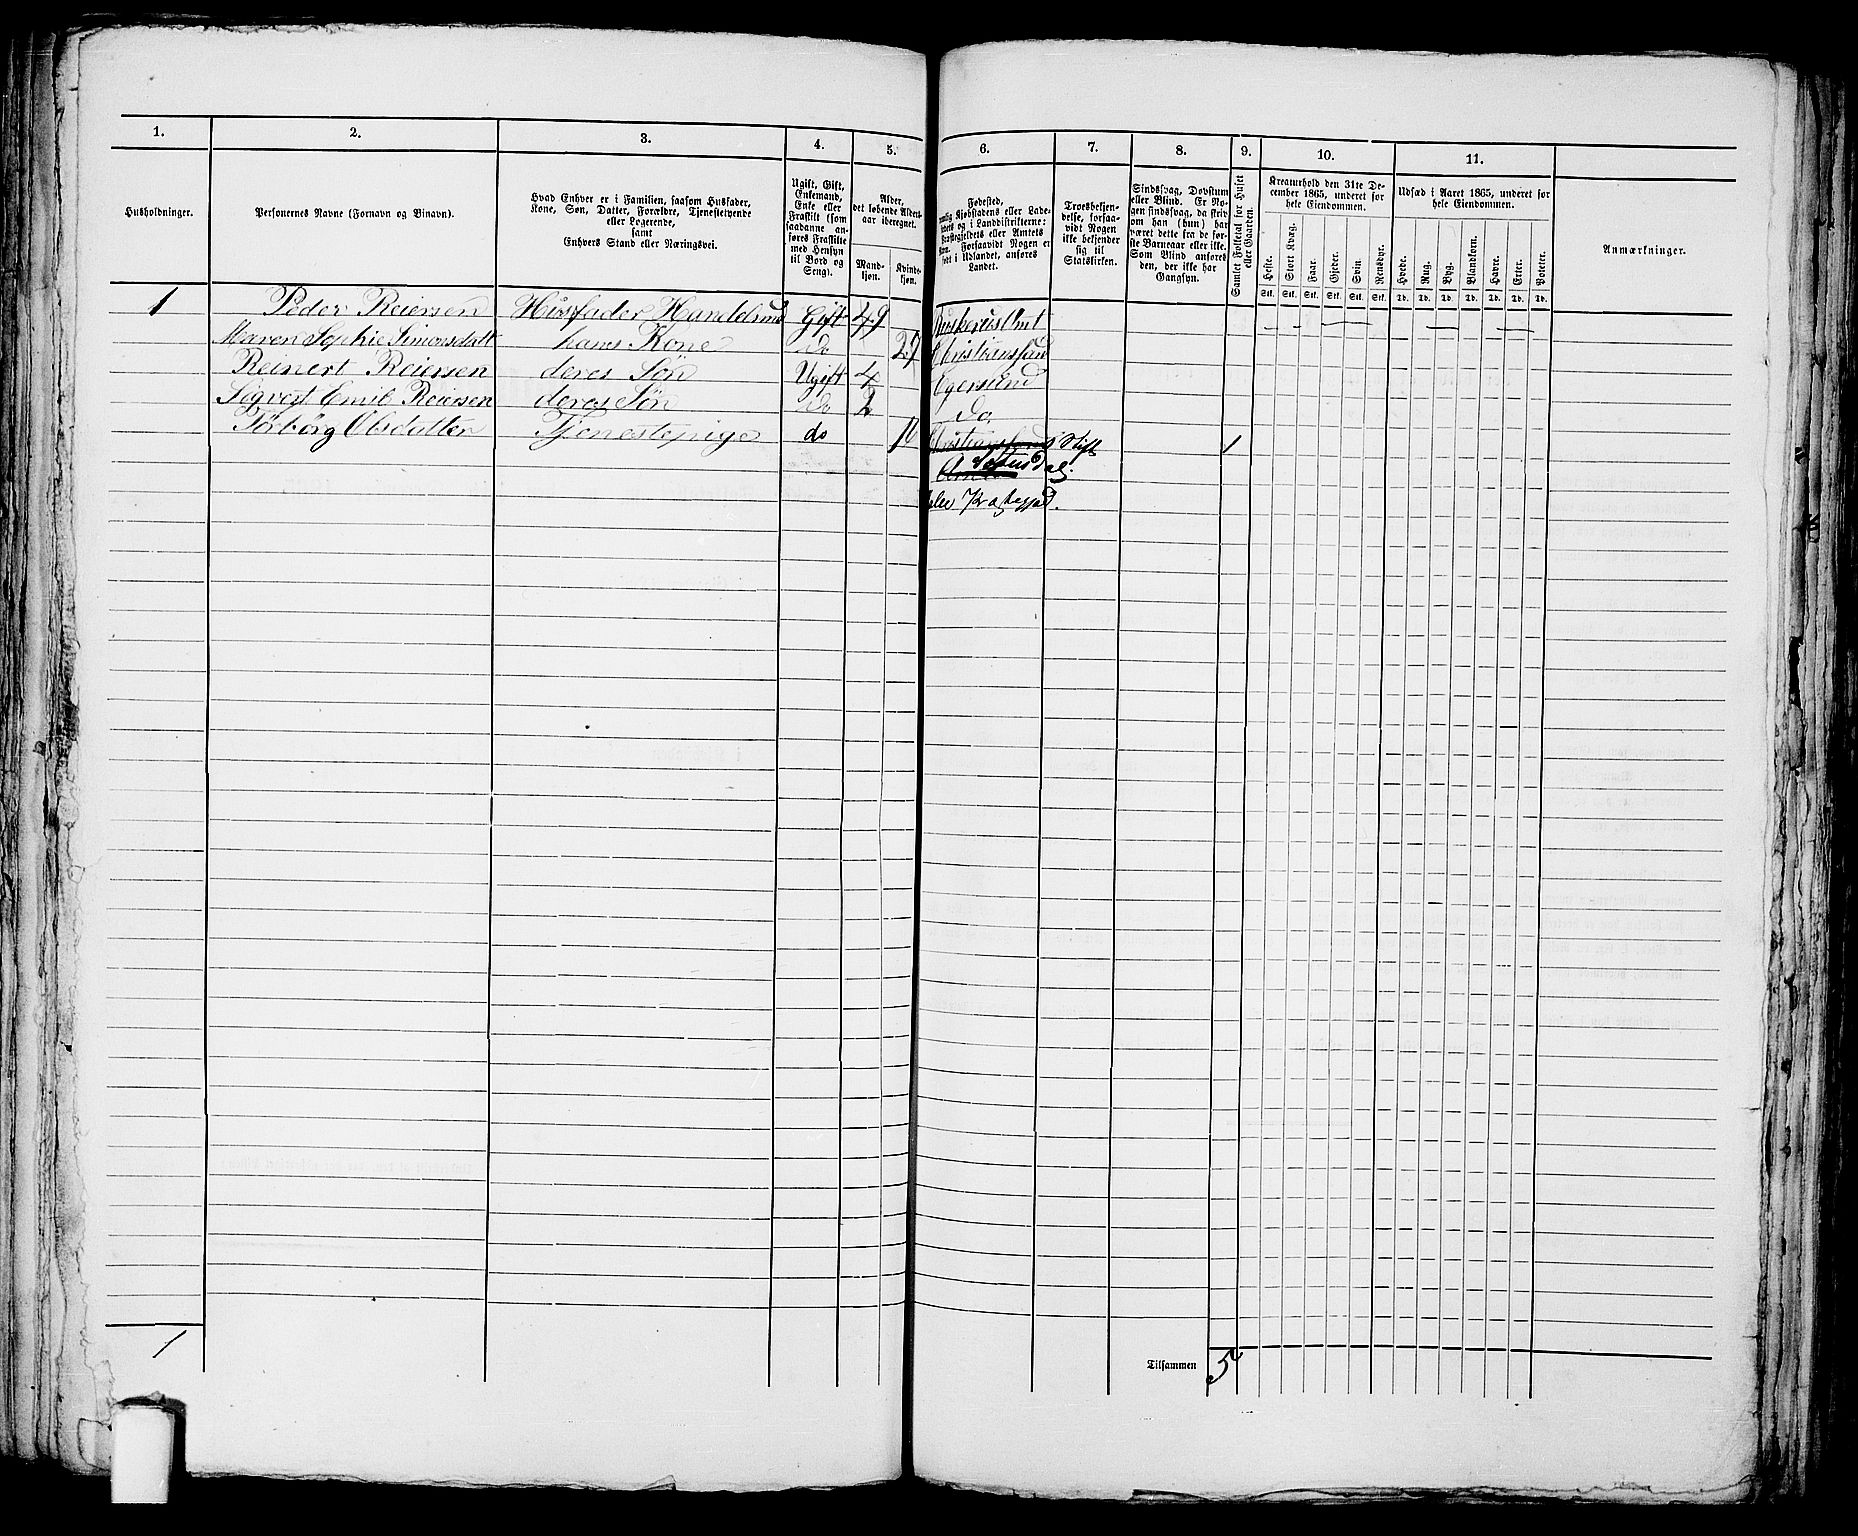 1. 2. 3. 4. 5. 6. 7. 8. 9. 10. 11.
Husholdninger.
Personernes Navne (Fornavn og Binavn).
Hvad Enhver er i Familien, saasom Husfader,
Kone, Søn, Datter, Forældre, Tjenestetyende
eller Logerende,
samt
Enhvers Stand eller Næringsvei.
Ugift, Gift,
Enkemand,
Enke eller
Fraskilt (som
saadanne an-
føres Fraskilte
med Hensyn
til Bord og
Seng).
Alder,
det løbende Alders-
aar iberegnet.
Mand-
kjøn.
Kvinde-
kjøn.
Fødested,
Kjøbstadens eller Lade-
og i Landdistrikterne:
eller Amtets
Forsaavidt Nogen er
født i Udlandet, anføres
Landet.
Troesbekjen-
delse, forsaa-
vidt Nogen
ikke bekjender
sig til
Statskirken.
Sindssvag, Døvstum
eller Blind. Er No-
gen sindssvag, da skriv
om han (hun) har
været dette fra de før-
ste Barneaar eller ikke.
Som Blind anføres
den, der ikke har
Gangsyn.
Samlet Folketal for Huset
eller Gaarden.
Kreaturhold den 31te De-
cember 1865, underet for
hele Eiendommen.
Heste. Stort Kvæg. Faar. Gjeder. Svin. Rensdyr.
Stk. Stk. Stk. Stk. Stk. Stk.
Udsæd i Aaret 1865, underet for
hele Eiendommen.
Hvede. Rug. Byg. Blandkorn. Havre. Erter. Poteter.
Td. Td. Td. Td. Td. Td. Td.
Anmærkninger.
1 Peder Reiersen Husfader Handelsmd Gift 49 Buskeruds Amt
Maren Sophie Simonsdatt hans Kone do 27 Christianssand
Reinert Reiersen deres Søn Ugift 4 Egersund
Sigvert Emil Reiersen deres Søn do 2 do
Torborg Olsdatter Tjenestepige do Christiansands Stift 1
Sætersdal
Præstegjæld.
1 Tilsammen 5